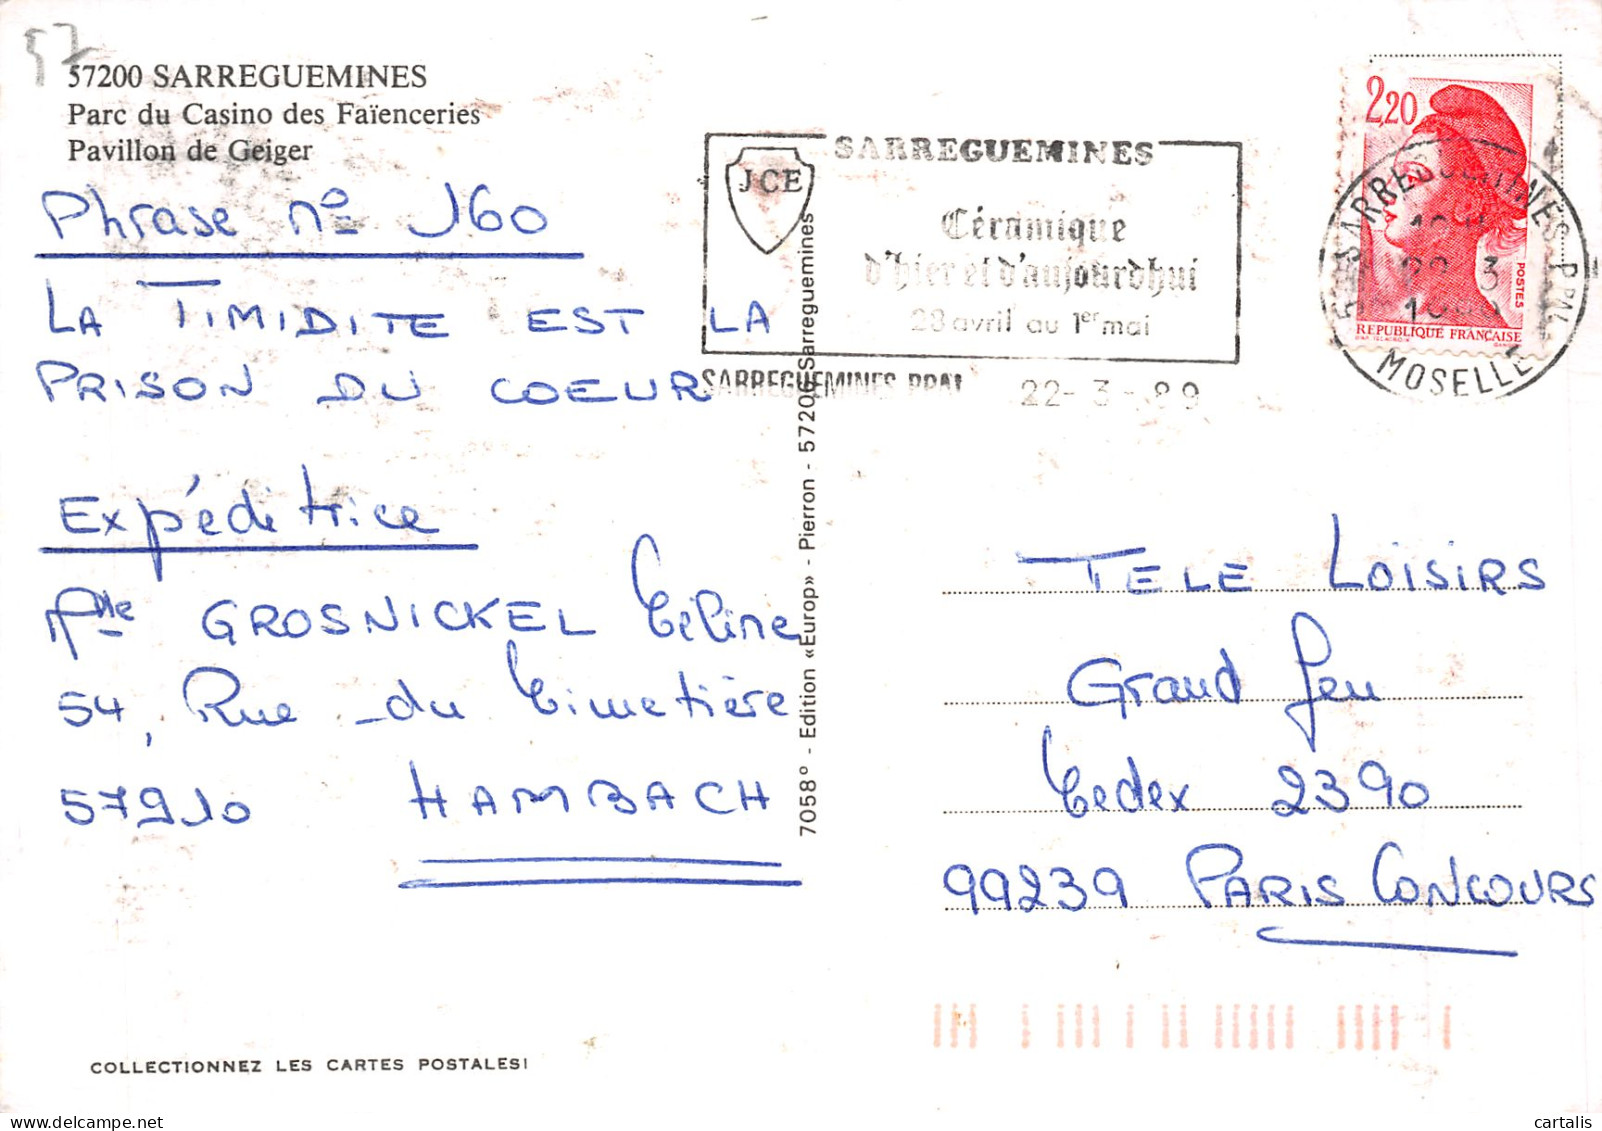 57
57200 SARREGUEMINES
Parc du Casino des Faïenceries
Pavillon de Geiger
Phrase n° 160
LA TIMIDITE EST LA
PRISON DU COEUR
Expéditrice
Mlle GROSNICKEL Céline
54, Rue du Cimetière
57910 HAMBACH
COLLECTIONNEZ LES CARTES POSTALES!
7058° - Edition «Europ» - Pierron - 57206 Sarreguemines
JCE
SARREGUEMINES
Céramique
d'hier et d'aujourdhui
28 avril au 1er mai
SARREGUEMINES PPAL
22-3-89
2,20
POSTES
REPUBLIQUE FRANÇAISE
SARREGUEMINES PPAL
MOSELLE
TELE LOISIRS
Grand Jeu
Cedex 2390
99239 PARIS CONCOURS
cartalis